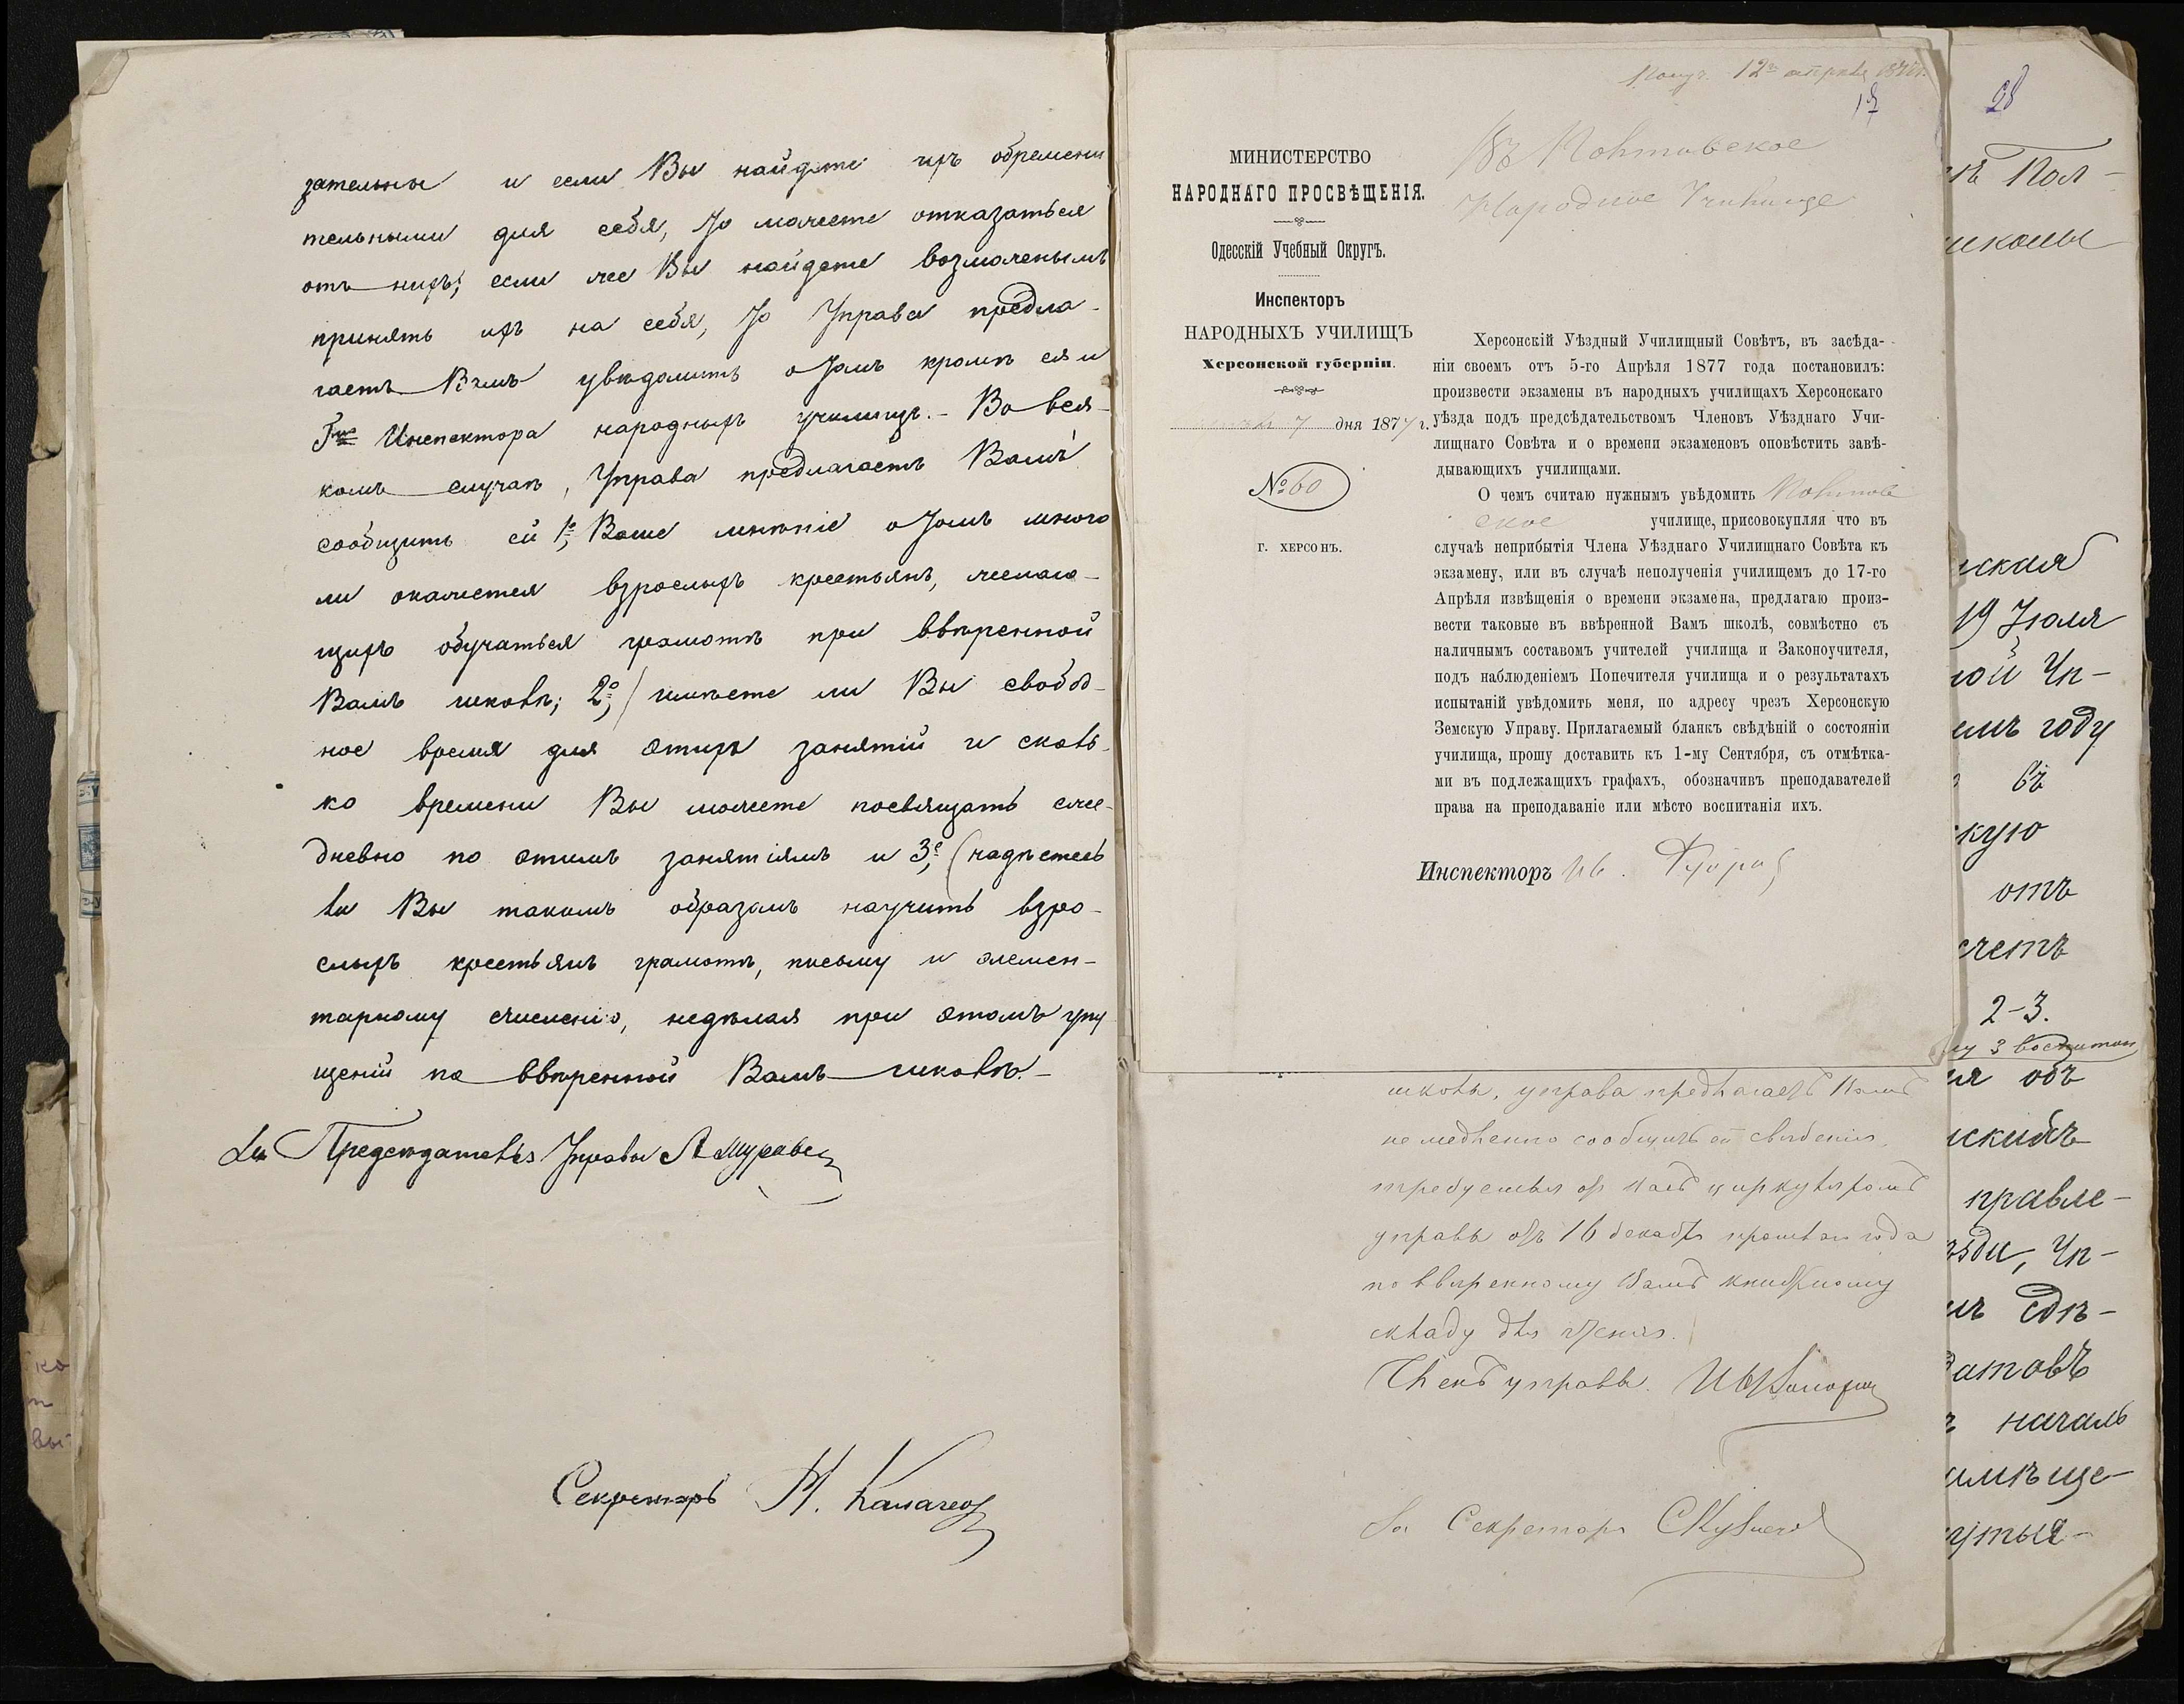 зательны и если Вы найдете ихъ обремени
тельными для себя, то можете отказаться
отъ нихъ; если же Вы найдете возможнымъ
принять ихъ на себя, то Управа предла-
гаетъ Вамъ увѣдомить о томъ кромѣ ея и
Гна Инспектора народныхъ училищъ.- Во вся-
комъ случаѣ, Управа предлагаетъ Вамъ
сообщить ей 1е, Ваше мнѣніе о томъ много
ли окажется взрослыхъ крестьянъ, желаю-
щихъ обучаться грамотѣ при ввѣренной
Вамъ школѣ; 2о,) имѣете ли Вы свобод-
ное время для этихъ занятій и сколь-
ко времени Вы можете посвящать еже-
дневно по этимъ занятіямъ и 3е, (надѣетесь
ли Вы такимъ образомъ научить взро-
слыхъ крестьянъ грамотѣ, письму и элемен-
тарному счисленію, недѣлая при этомъ упу
щеній по ввѣренной Вамъ школѣ.-
За Предсѣдателя Управы А
Секретарь
Получ. 12го апрѣля
17
Въ Полтавское
Народное Училище
МИНИСТЕРСТВО
НАРОДНАГО ПРОСВѢЩЕНІЯ.
Одесскій Учебный Округъ.
Инспекторъ
НАРОДНЫХЪ УЧИЛИЩЪ
Херсонской губерніи.
7 дня 1877 г.
№ 60
г. ХЕРСОНЪ.
Херсонскій Уѣздный Училищный Совѣтъ, въ засѣда-
ніи своемъ отъ 5-го Апрѣля 1877 года постановилъ:
произвести экзамены въ народныхъ училищахъ Херсонскаго
уѣзда подъ предсѣдательствомъ Членовъ Уѣзднаго Учи-
лищнаго Совѣта и о времени экзаменовъ оповѣстить завѣ-
дывающихъ училищами.
О чемъ считаю нужнымъ увѣдомить Полтав
ское училище, присовокупляя что въ
случаѣ неприбытія Члена Уѣзднаго Училищнаго Совѣта къ
экзамену, или въ случаѣ неполученія училищемъ до 17-го
Апрѣля извѣщенія о времени экзамена, предлагаю произ-
вести таковые въ ввѣренной Вамъ школѣ, совмѣстно съ
наличнымъ составомъ учителей училища и Законоучителя,
подъ наблюденіемъ Попечителя училища и о результатахъ
испытаній увѣдомить меня, по адресу чрезъ Херсонскую
Земскую Управу. Прилагаемый бланкъ свѣдѣній о состояніи
училища, прошу доставить къ 1-му Сентября, съ отмѣтка-
ми въ подлежащихъ графахъ, обозначивъ преподавателей
права на преподаваніе или мѣсто воспитанія ихъ.
Инспекторъ Ив.
школы, управа предлагаетъ Вамъ
немедленно сообщить ей свѣденія,
требуемыя отъ Васъ циркуляромъ
управы отъ 16 декабря прошлаго года
по ввѣренному Вамъ книжному
складу для чтенія.
Членъ управы
За Секретаря
28
Пол-
школы
ская
19 Іюля
ной Уп-
емъ году
въ
скую
отъ
счетъ
2-3.
3
ія объ
скихъ
правле-
ѣзди, Уп-
сдѣ-
датовъ
началь